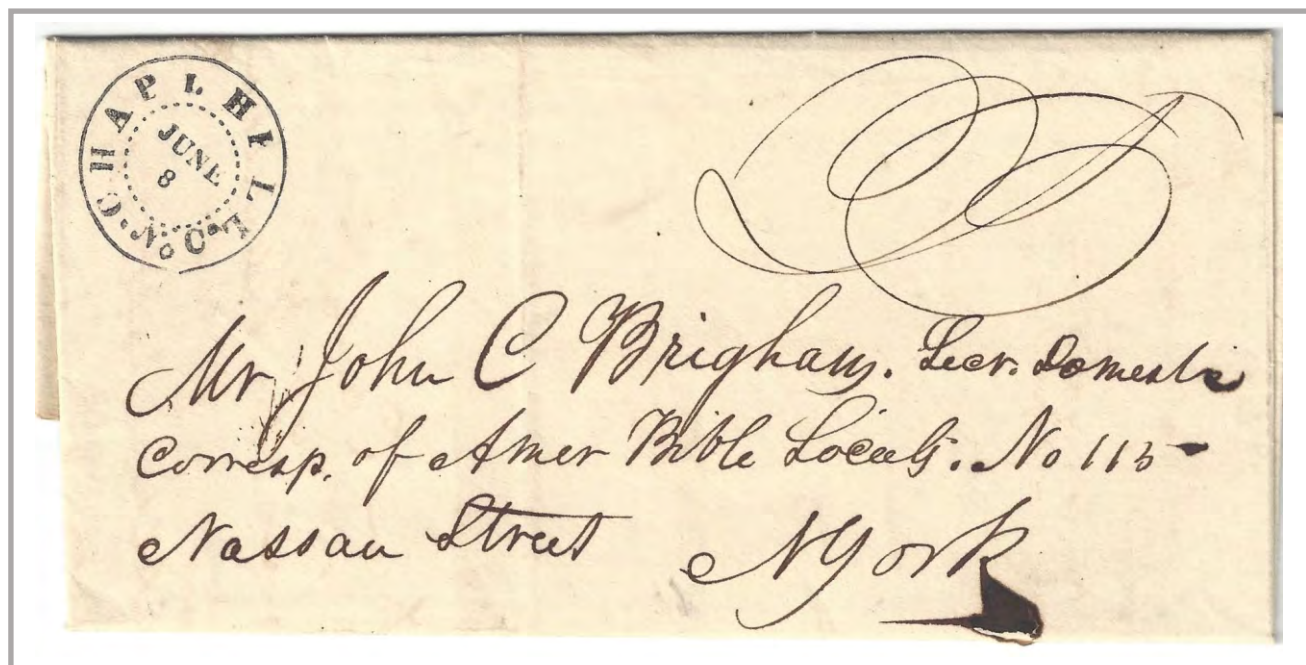 CHAPL HILL. No. Ca.
JUNE
8
Mr John C Brigham. Secr. Domestic
Corresp. of Amer Bible Society. No 115
Nassau Street NYork